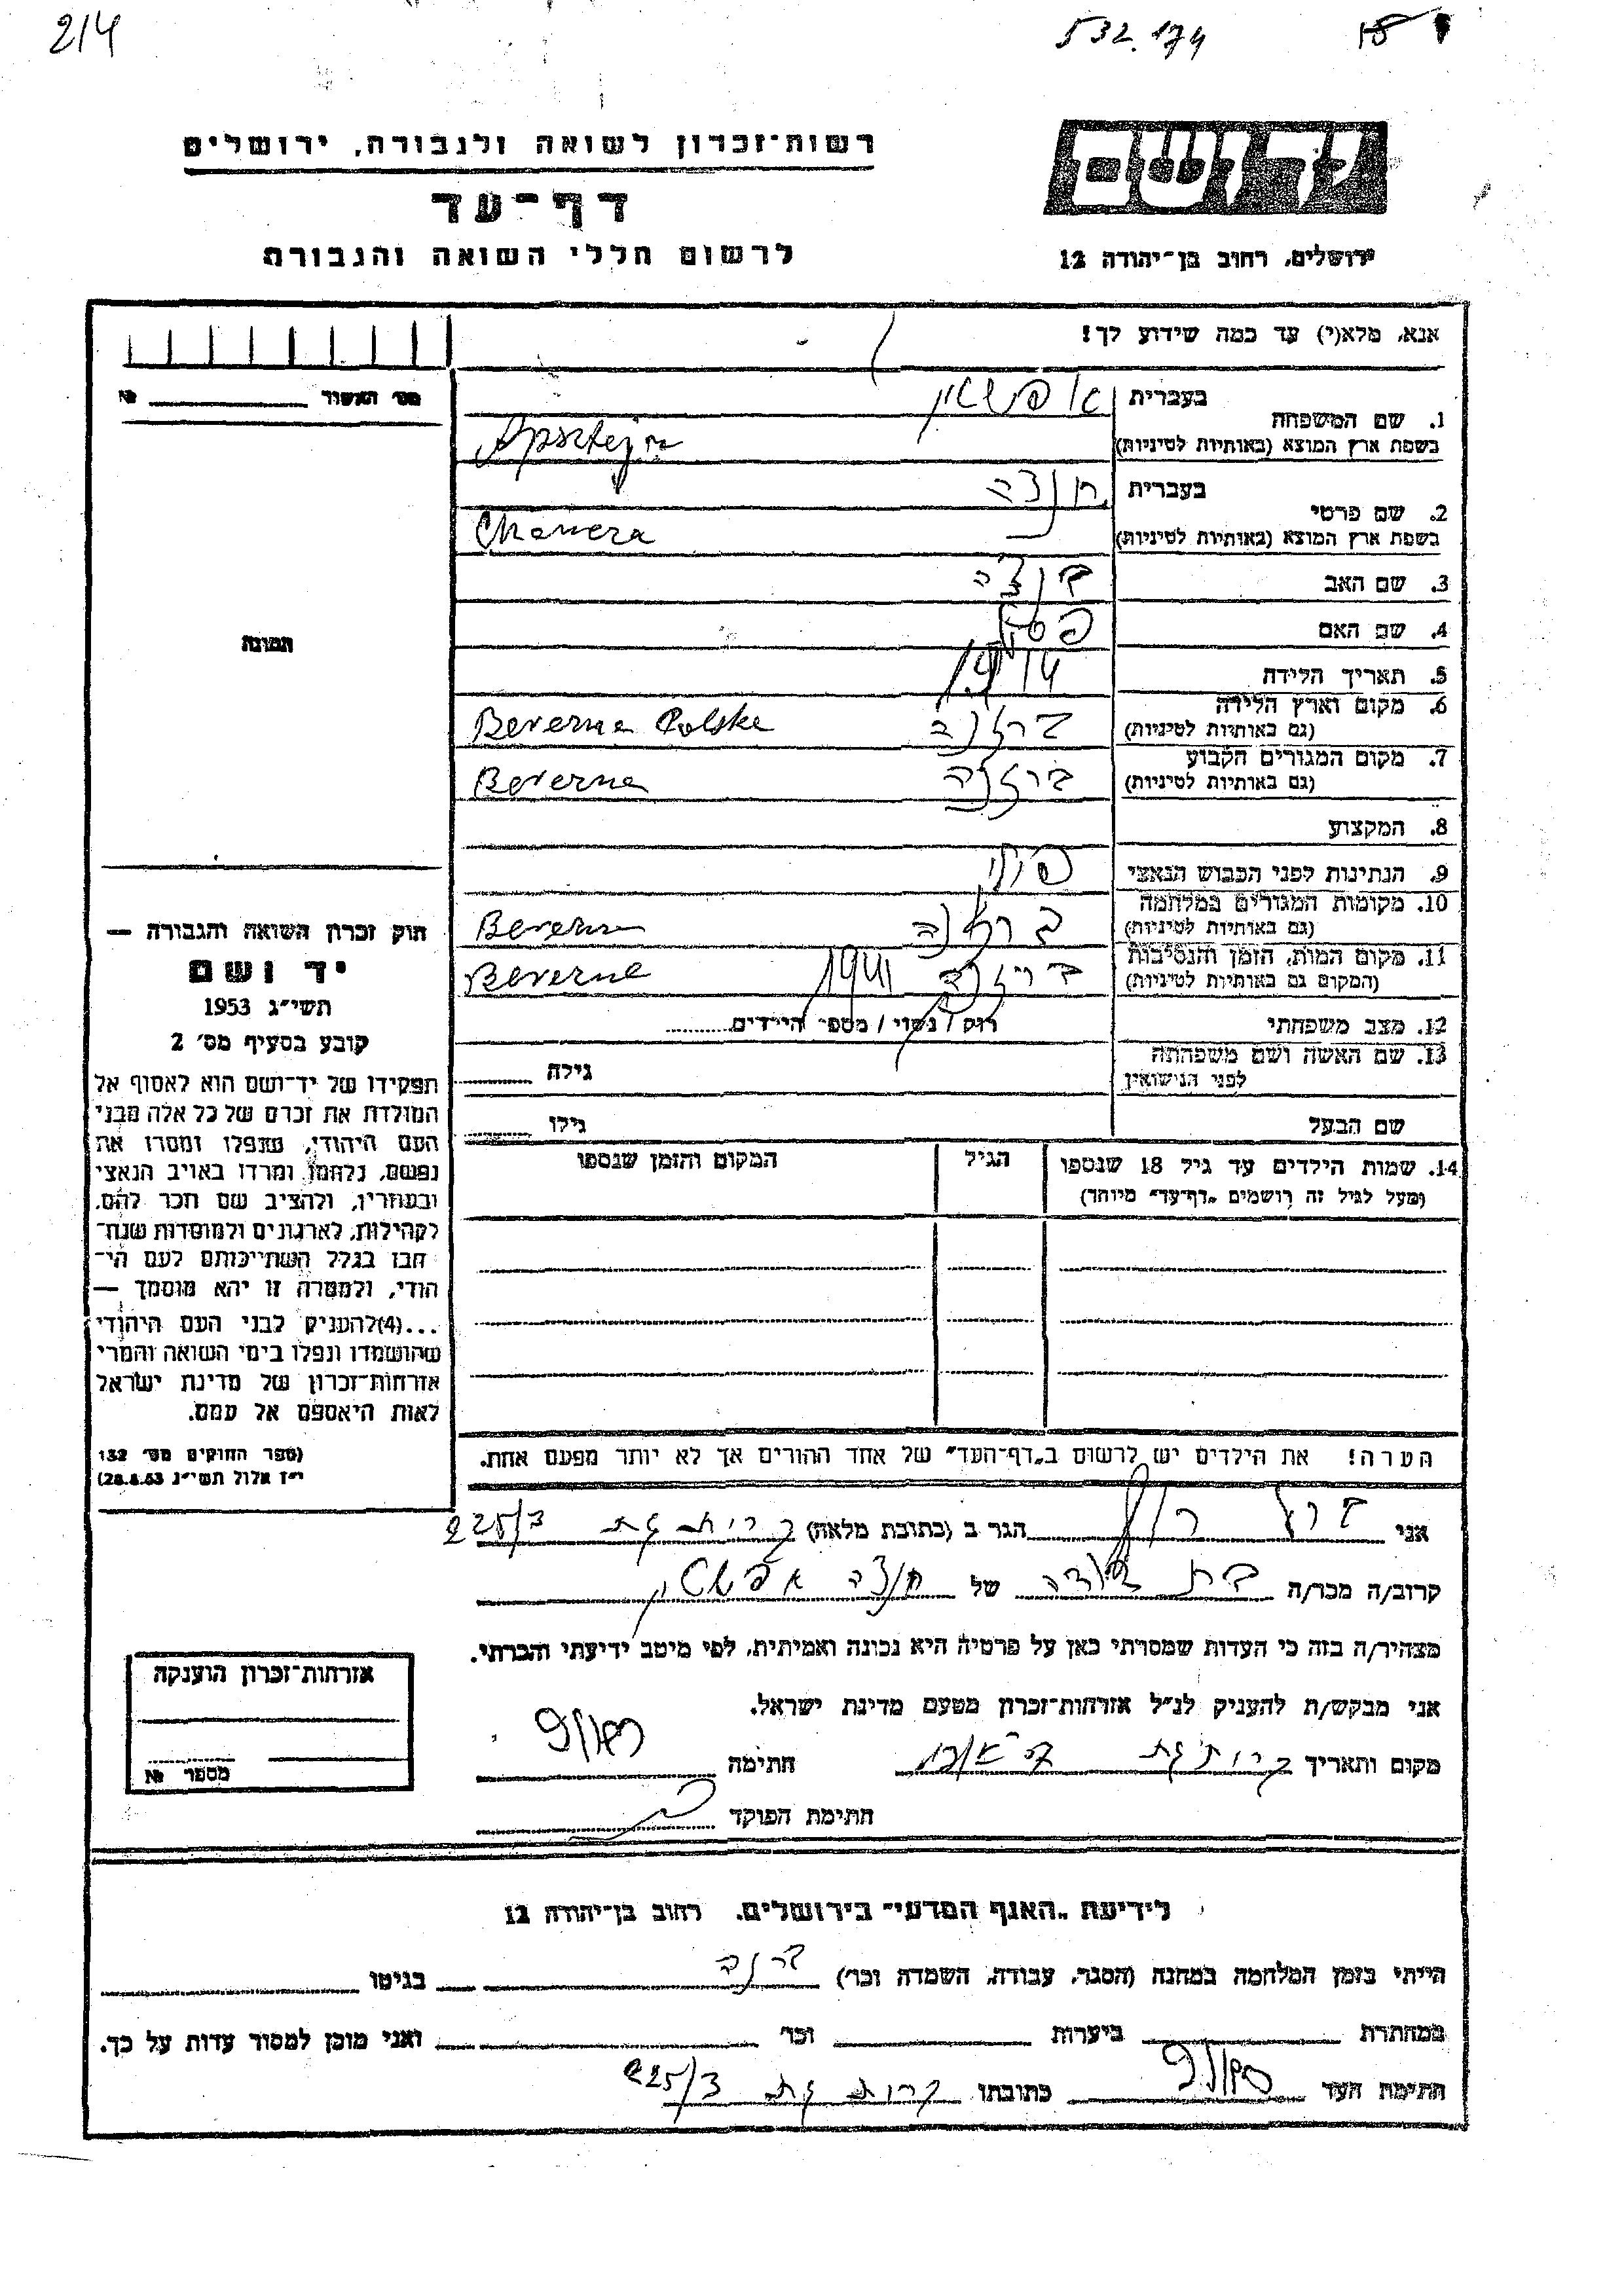 214
532.174
18
רשות־זכרון לשואה ולגבורה, ירושלים
דף־עד
לרשום חללי השואה והגבורה
יד ושם
ירושלים, רחוב בן־יהודה 12
אנא, מלא(י) עד כמה שידוע לך!
מס׳ האשור №
1. שם המשפחה בעברית
בשפת ארץ המוצא (באותיות לטיניות) Apsztejn
2. שם פרטי בעברית
בשפת ארץ המוצא (באותיות לטיניות)
3. שם האב
4. שם האם
5. תאריך הלידה 1914
6. מקום וארץ הלידה
(גם באותיות לטיניות) Bererne Polske
7. מקום המגורים הקבוע
(גם באותיות לטיניות) Bererne
8. המקצוע
9. הנתינות לפני הכבוש הנאצי
10. מקומות המגורים במלחמה
(גם באותיות לטיניות)
11. מקום המות, הזמן והנסיבות
(המקום גם באותיות לטיניות) 1941 Bererne
12. מצב משפחתי רוק / נשוי / מספר הילדים
13. שם האשה ושם משפחתה
לפני הנישואין גילה
שם הבעל גילו
14. שמות הילדים עד גיל 18 שנספו הגיל המקום והזמן שנספו
(מעל לגיל זה רושמים „דף־עד" מיוחד)
הערה! את הילדים יש לרשום ב„דף־העד" של אחד ההורים אך לא יותר מפעם אחת.
התמונה
חוק זכרון השואה והגבורה —
יד ושם
תשי״ג 1953
קובע בסעיף מס׳ 2
תפקידו של יד־ושם הוא לאסוף אל
המולדת את זכרם של כל אלה מבני
העם היהודי, שנפלו ומסרו את
נפשם, נלחמו ומרדו באויב הנאצי
ובעוזריו, ולהציב שם וזכר להם,
לקהילות, לארגונים ולמוסדות שנח־
רבו בגלל השתייכותם לעם הי־
הודי, ולמטרה זו יהא מוסמך —
...(4)להעניק לבני העם היהודי
שהושמדו ונפלו בימי השואה והמרי
אזרחות־זכרון של מדינת ישראל
לאות היאספם אל עמם.
(ספר החוקים מס׳ 132
י״ז אלול תשי״ג 28.8.53)
אני הגר ב (כתובת מלאה) קרית גת 225/3
קרוב/ה מכר/ה בת דודה של
מצהיר/ה בזה כי העדות שמסרתי כאן על פרטיה היא נכונה ואמיתית, לפי מיטב ידיעתי והכרתי.
אני מבקש/ת להעניק לנ״ל אזרחות־זכרון מטעם מדינת ישראל.
מקום ותאריך קרית גת חתימה
חתימת הפוקד
אזרחות־זכרון הוענקה
מספר №
לידיעת „האגף המדעי" בירושלים, רחוב בן־יהודה 12
הייתי בזמן המלחמה במחנה (הסגר, עבודה, השמדה וכו׳) בגיטו
במחתרת ביערות וכו׳ ואני מוכן למסור עדות על כך.
חתימת העד כתובתו קרית גת 225/3